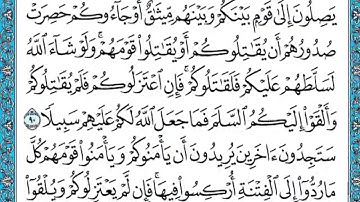 يَصِلُونَ إِلَىٰ قَوْمٍۭ بَيْنَكُمْ وَبَيْنَهُم مِّيثَٰقٌ أَوْ جَآءُوكُمْ حَصِرَتْ
صُدُورُهُمْ أَن يُقَٰتِلُوكُمْ أَوْ يُقَٰتِلُوا۟ قَوْمَهُمْ ۚ وَلَوْ شَآءَ ٱللَّهُ
لَسَلَّطَهُمْ عَلَيْكُمْ فَلَقَٰتَلُوكُمْ ۚ فَإِنِ ٱعْتَزَلُوكُمْ فَلَمْ يُقَٰتِلُوكُمْ
وَأَلْقَوْا۟ إِلَيْكُمُ ٱلسَّلَمَ فَمَا جَعَلَ ٱللَّهُ لَكُمْ عَلَيْهِمْ سَبِيلًا ٩٠
سَتَجِدُونَ ءَاخَرِينَ يُرِيدُونَ أَن يَأْمَنُوكُمْ وَيَأْمَنُوا۟ قَوْمَهُمْ كُلَّ
مَا رُدُّوٓا۟ إِلَى ٱلْفِتْنَةِ أُرْكِسُوا۟ فِيهَا ۚ فَإِن لَّمْ يَعْتَزِلُوكُمْ وَيُلْقُوٓا۟